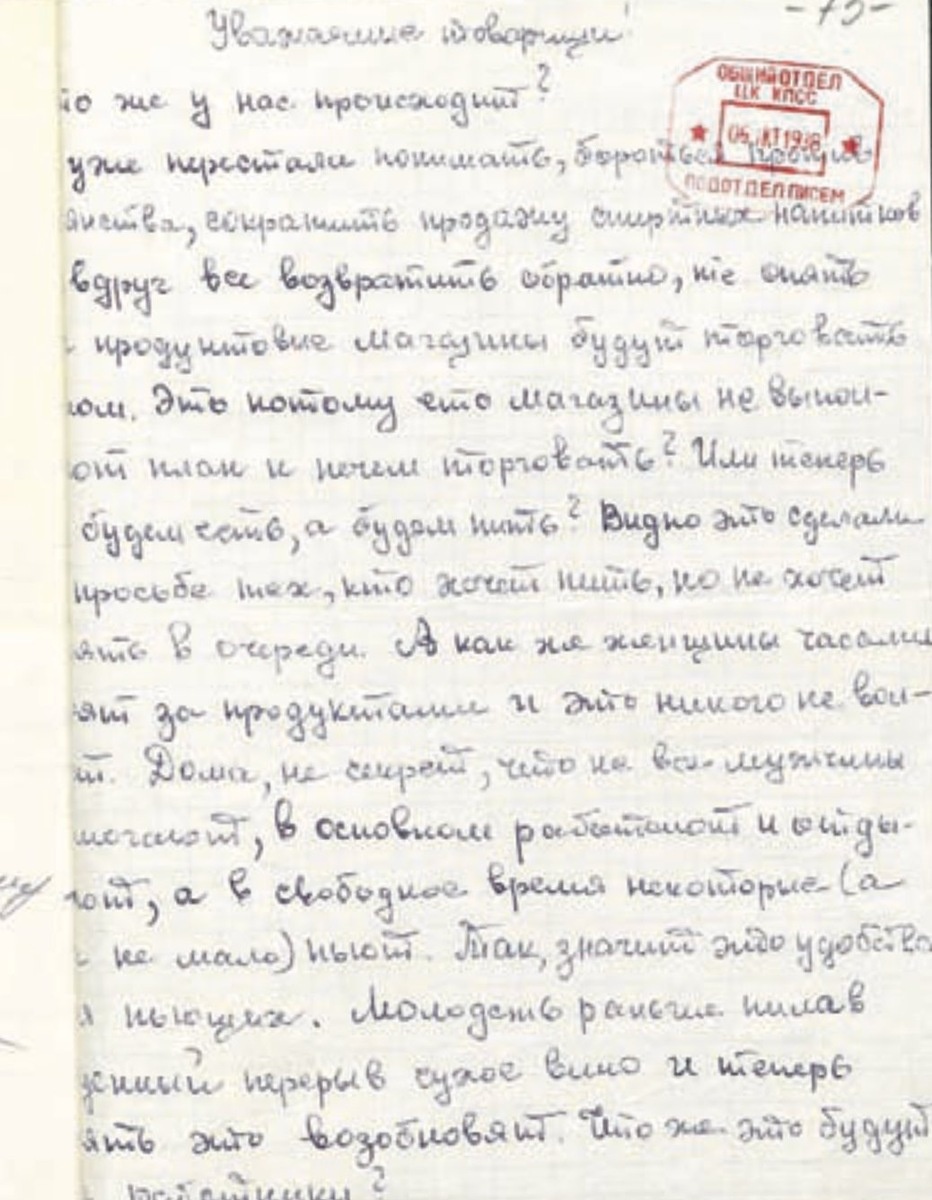 -75-
Уважаемые товарищи!
ОБЩИЙ ОТДЕЛ
ЦК КПСС
05 ОКТ 1988
ПОДОТДЕЛ ПИСЕМ
то же у нас происходит?
уже перестали понимать, бороться против
янства, сократить продажу спиртных напитков
вдруг все возвратить обратно, опять
продуктовые магазины будут торговать
ом. Это потому что магазины не выпол-
ют план и нечем торговать? Или теперь
будем есть, а будем пить? Видно это сделали
просьбе тех, кто хочет пить, но не хочет
ять в очереди. А как же женщины часами
ят за продуктами и это никого не вол-
ет. Дома, не секрет, что не все мужчины
могают, в основном работают и отды-
ют, а в свободное время некоторые (а
не мало) пьют. Так, значит это удобство
я пьющих. Молодежь раньше пила в
денный перерыв сухое вино и теперь
ять это возобновят. Что же это будут
работники?